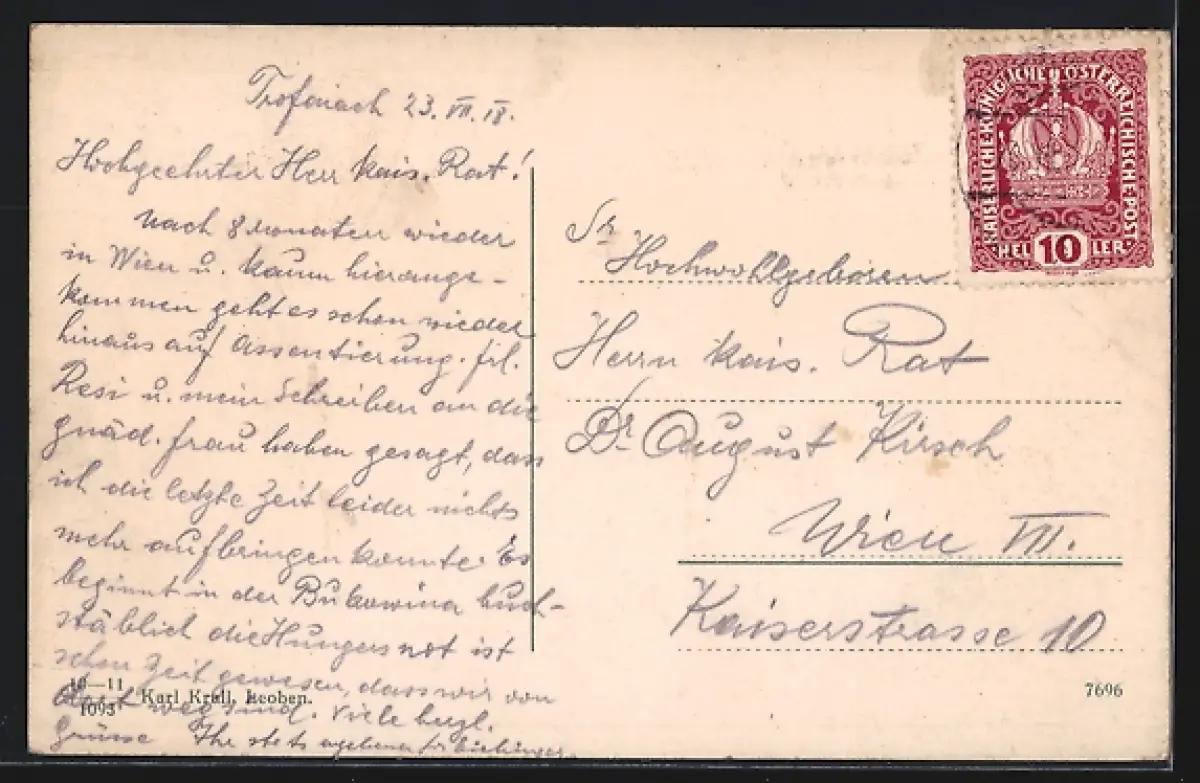 Trofaiach 23. VII. 18.
Hochgeehrter Herr kais. Rat!
Nach 8 Monaten wieder
in Wien u. kaum hierange-
kommen geht es schon wieder
hinaus auf Assentierung. Frl.
Resi u. mein Schreiben an die
gnäd. Frau haben gesagt, dass
ich die letzte Zeit leider nichts
mehr aufbringen konnte. Es
beginnt in der Bukowina buch-
stäblich die Hungersnot ist
schon Zeit gewesen, dass wir von
dort weg sind. Viele herzl.
Grüsse Ihr stets ergebener
10—11 Karl Krall, Leoben.
1093
KAISERLICHE KÖNIGLICHE ÖSTERREICHISCHE POST
HEL 10 LER
Sr
Hochwohlgeboren
Herrn kais. Rat
Dr August Kirsch
Wien VII.
Kaiserstrasse 10
7696